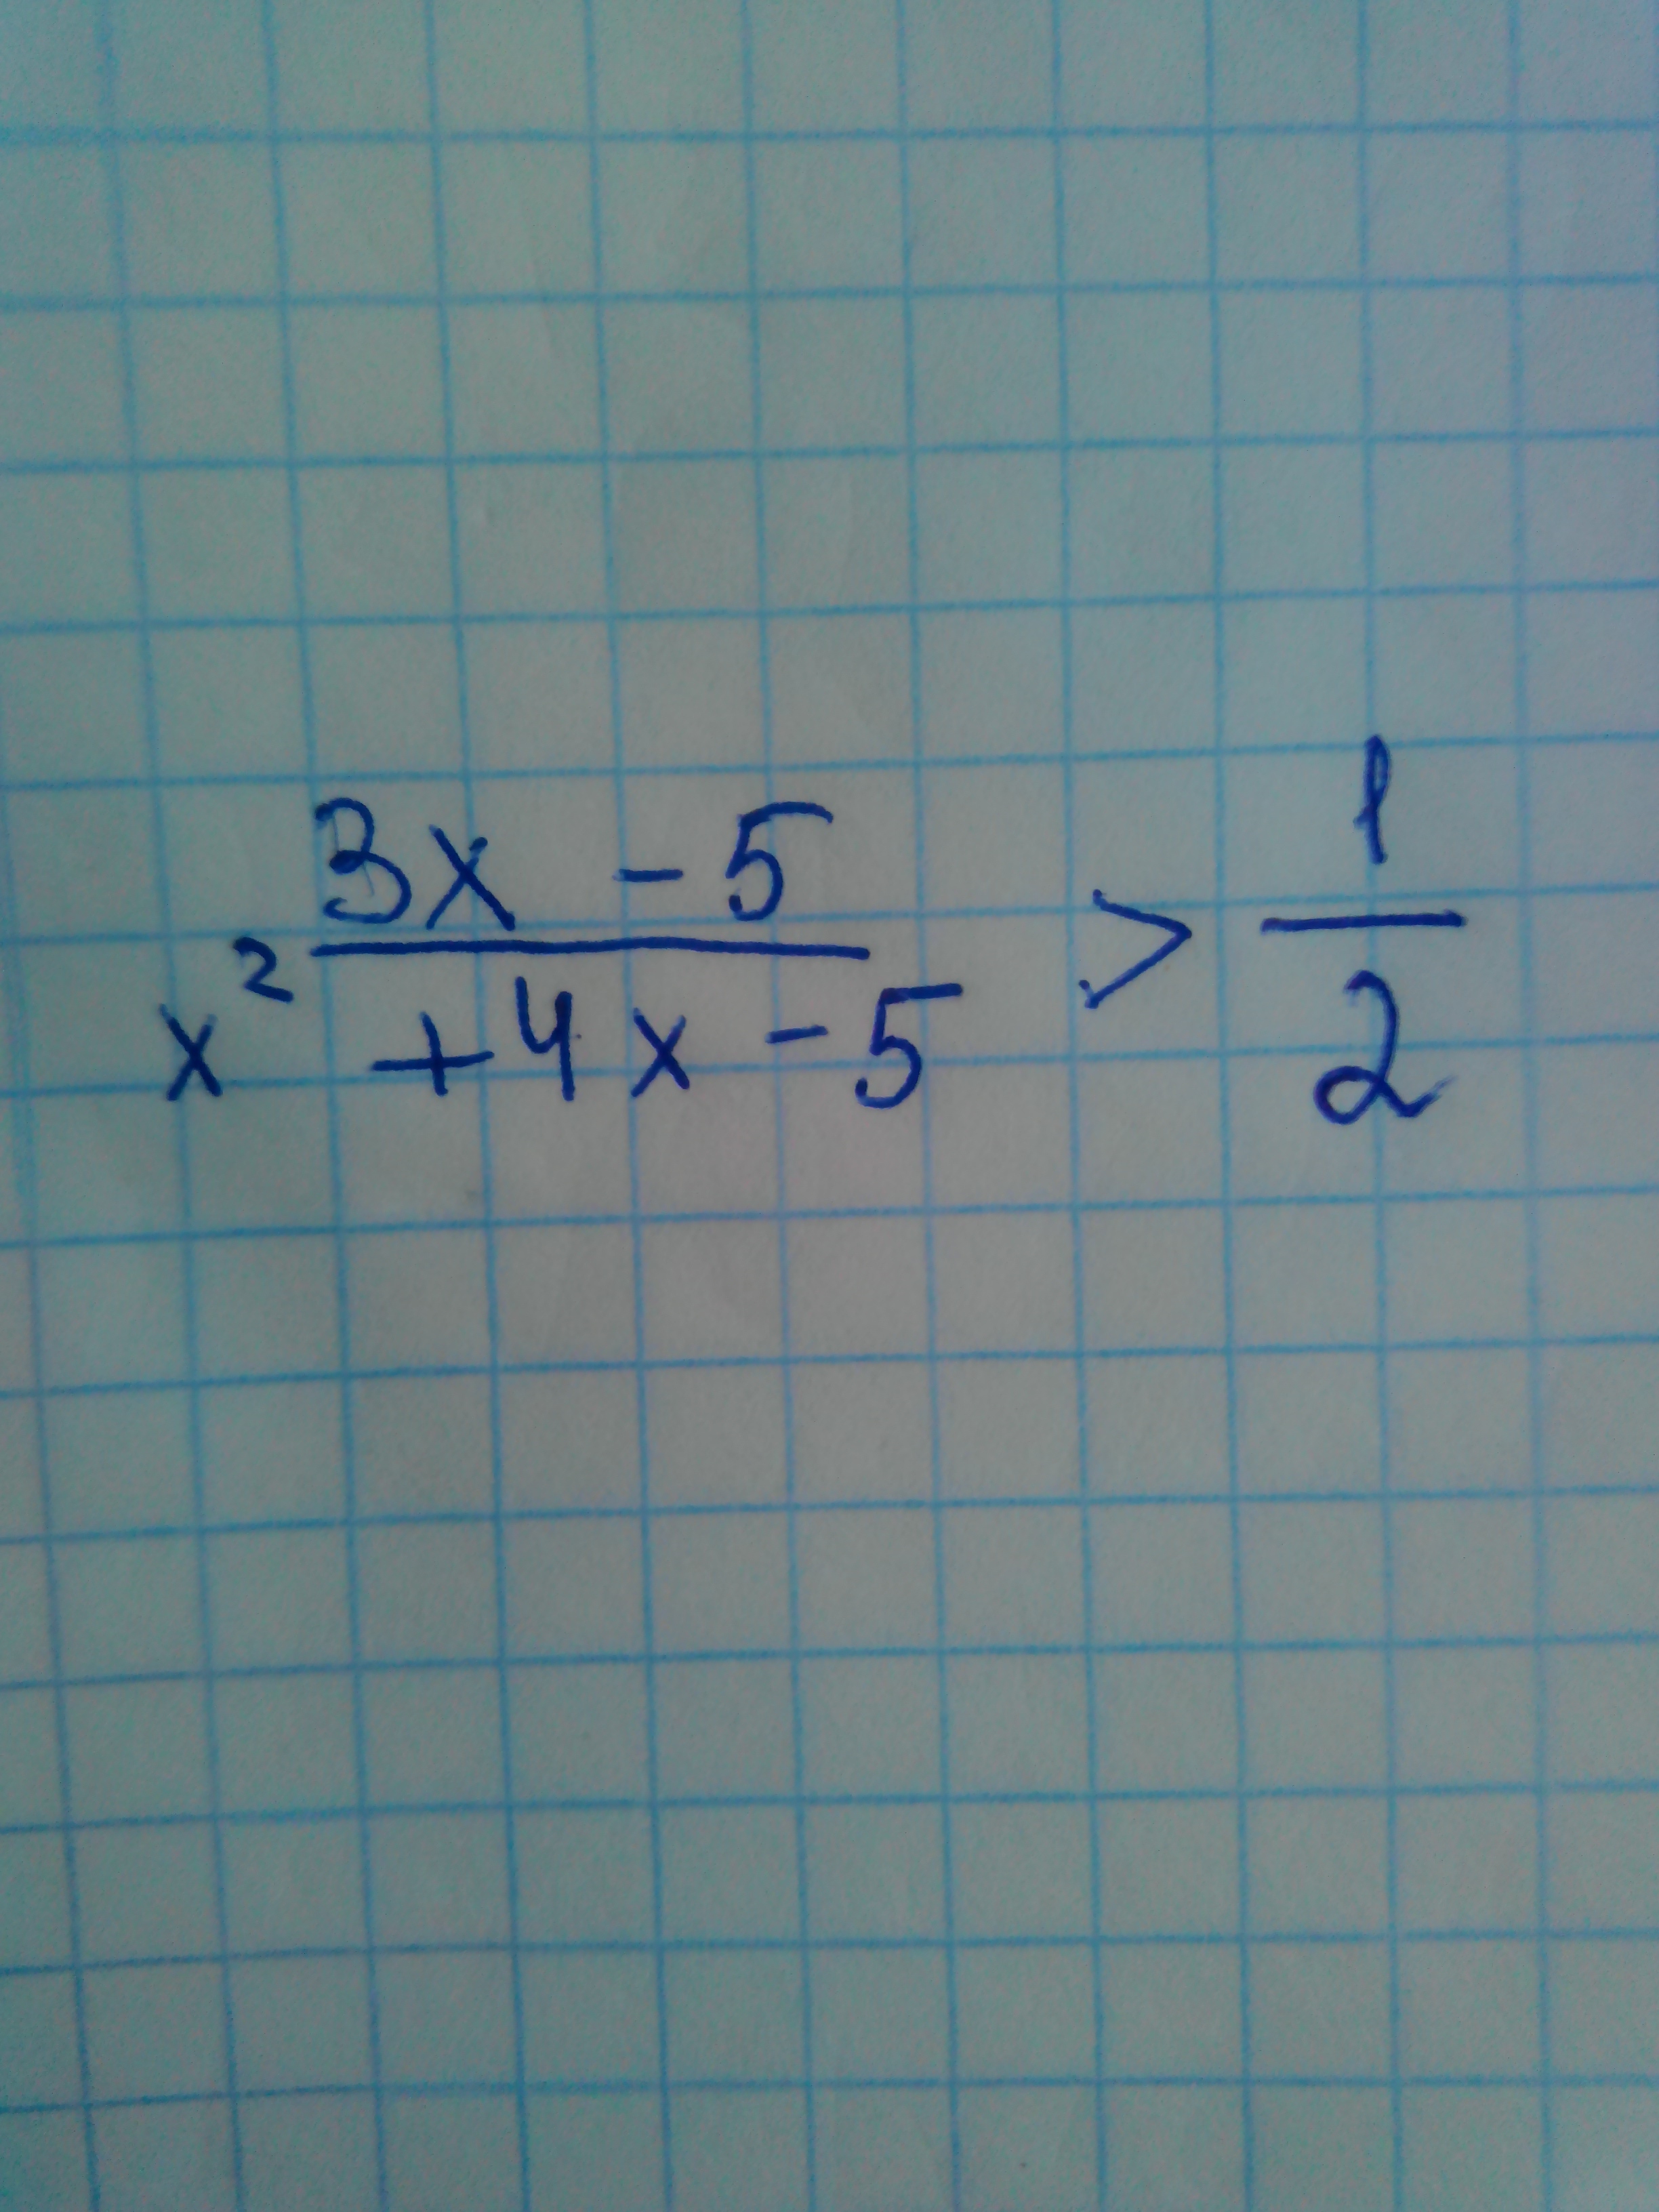 3x - 5
x² + 4x - 5 > 1
2